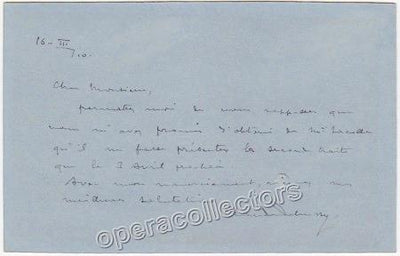 16-III/10.
Cher Monsieur,
permettez moi de vous rappeler que
vous m'avez promis d'obtenir de
qu'il ne fasse présenter la seconde traite
que le 3 Avril prochain.
Avec mon
meilleures salutations
operacollectors